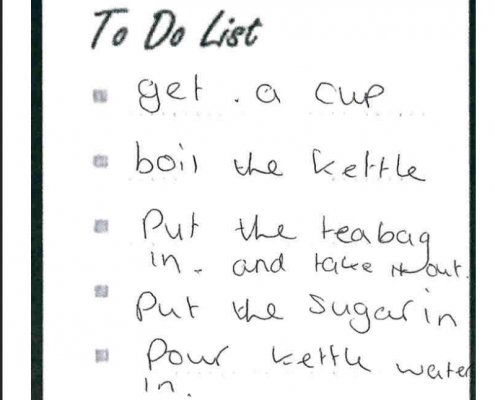 To Do List
get . a cup
boil the kettle
Put the teabag
in. and take it out.
Put the sugar in
Pour kettle water
in.